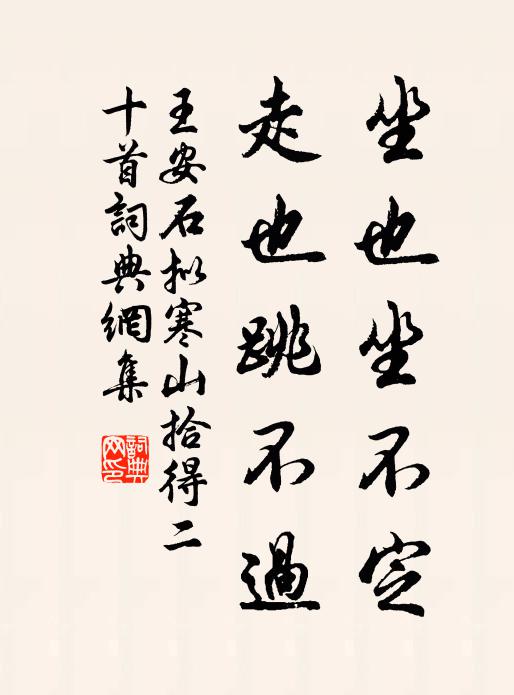 坐也坐不定
走也跳不過
王安石拟寒山拾得二
十首詞典網集
詞典
网印